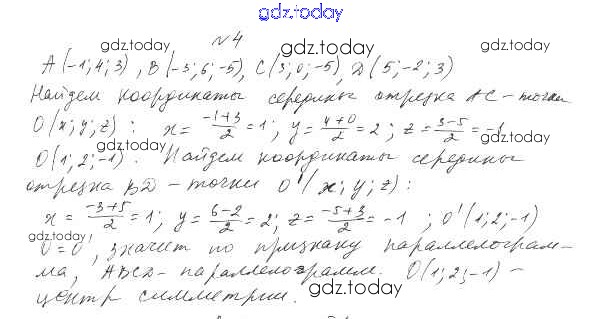 gdz.today
№4
A(-1; 4; 3), B(-3; 6; -5), C(3; 0; -5), D(5; -2; 3)
Найдем координаты середины отрезка AC - точки
O(x; y; z): x = \frac{-1+3}{2} = 1; y = \frac{4+0}{2} = 2; z = \frac{3-5}{2} = -1
O(1; 2; -1). Найдем координаты середины
отрезка BD - точки O'(x; y; z):
x = \frac{-3+5}{2} = 1; y = \frac{6-2}{2} = 2; z = \frac{-5+3}{2} = -1; O'(1; 2; -1)
O = O', значит по признаку параллелограм-
ма, ABCD - параллелограмм. O(1; 2; -1) -
центр симметрии.
gdz.today
gdz.today
gdz.today
gdz.today
gdz.today
gdz.today
gdz.today